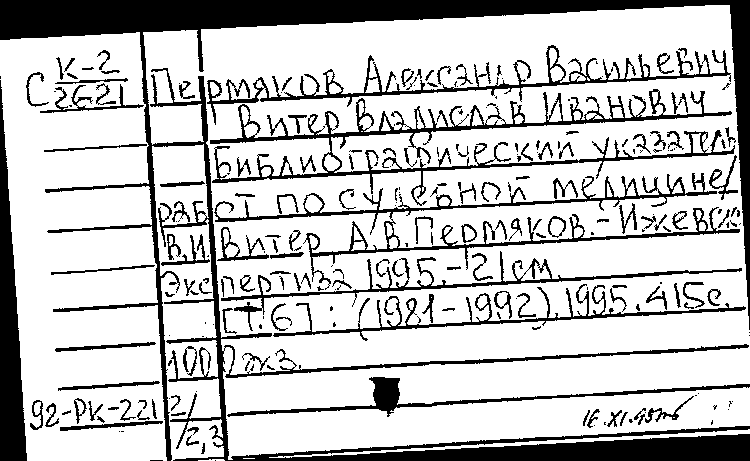 С К-2
2621
Пермяков, Александр Васильевич,
Витер, Владислав Иванович
Библиографический указатель
работ по судебной медицине/
В.И. Витер, А.В. Пермяков.-Ижевск:
Экспертиза, 1995.-21см.
[Т.6]: (1981-1992). 1995. 415с.
1000 экз.
92-РК-221 2/
/2,3
16.XI.95